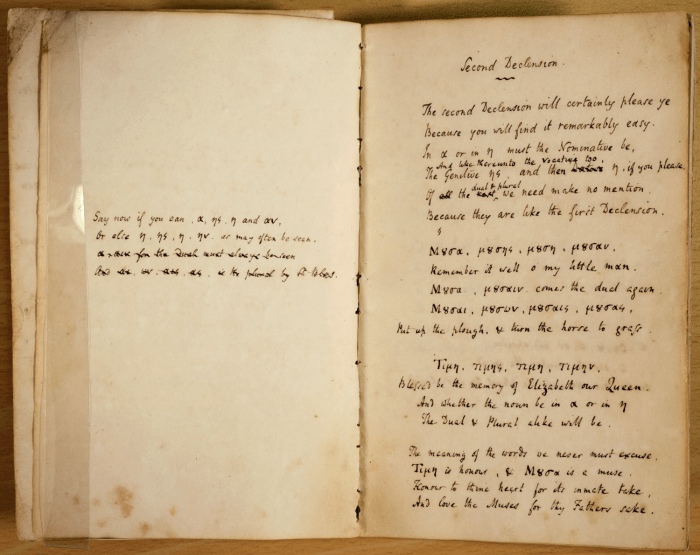 Say now if you can, α, ης, η and αν,
Or else η, ης, η, ην. so may often be seen.
for the Dual must always be seen
And is the plural by
Second Declension.
The second Declension will certainly please ye
Because you will find it remarkably easy.
In α or in η must the Nominative be,
And like thereunto the Vocative too,
The Genitive ης, and then Dative η. if you please.
dual & plural
Of all the we need make no mention.
Because they are like the first Declension.
Μȣσα, μȣσης, μȣση, μȣσαν,
Remember it well o my little man.
Μȣσα, μȣσαιν comes the duel again
Μȣσαι, μȣσων, μȣσαις, μȣσας,
Put up the plough, & turn the horse to grass.
Τιμη, τιμης, τιμη, τιμην,
Blessed be the memory of Elizabeth our Queen.
And whether the noun be in α or in η
The Dual & Plural alike will be.
The meaning of the words we never must excuse.
Τιμη is honour, & Μȣσα is a muse.
Honour to thine heart for its inmate take,
And love the Muses for thy Fathers sake.